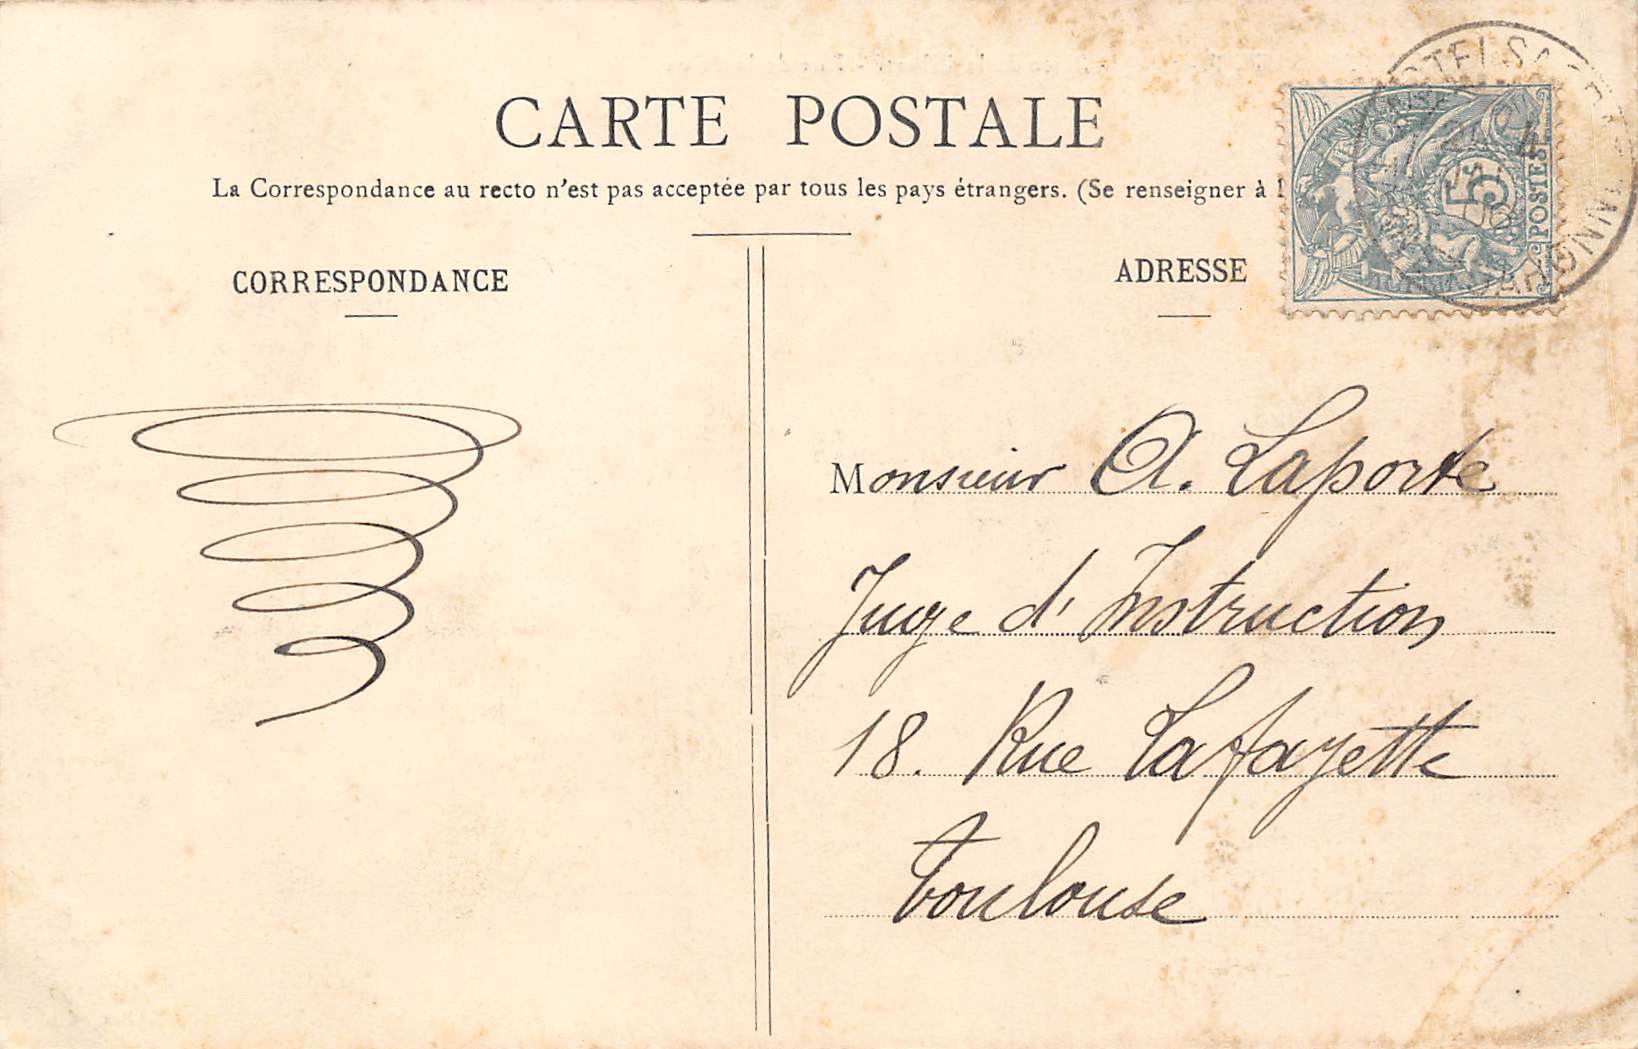 CARTE POSTALE
La Correspondance au recto n'est pas acceptée par tous les pays étrangers. (Se renseigner à
CORRESPONDANCE
ADRESSE
5
POSTES
Monsieur A. Laporte
Juge d'Instruction
18. Rue Lafayette
Toulouse